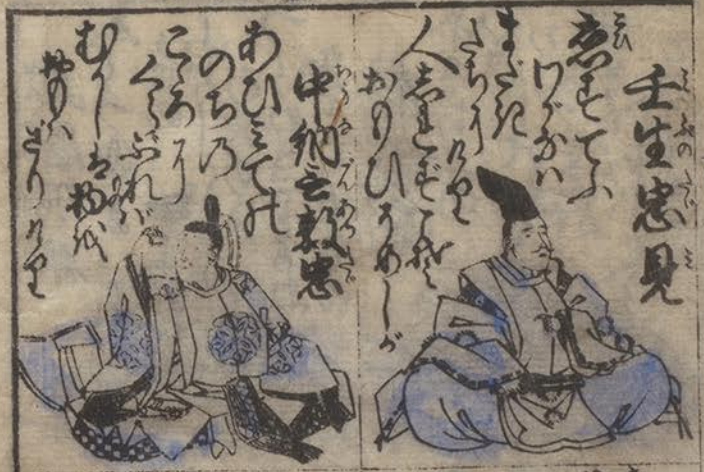 壬生忠見
恋すてふ
わがなは
まだき
たちにけり
人しれずこそ
おもひそめしが
中納言敦忠
あひみての
のちの
こころに
くらぶれば
むかしは物を
おもは
ざりけり